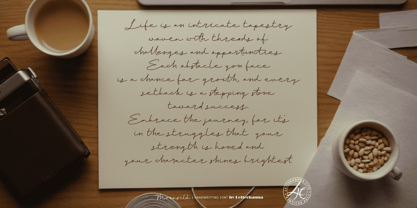 Life is an intricate tapestry
woven with threads of
challenges and opportunities.
Each obstacle you face
is a chance for growth, and every
setback is a stepping stone
toward success.
Embrace the journey, for it's
in the struggles that your
strength is honed and
your character shines brightest.
HANDWRITING FONT by Letterhanna